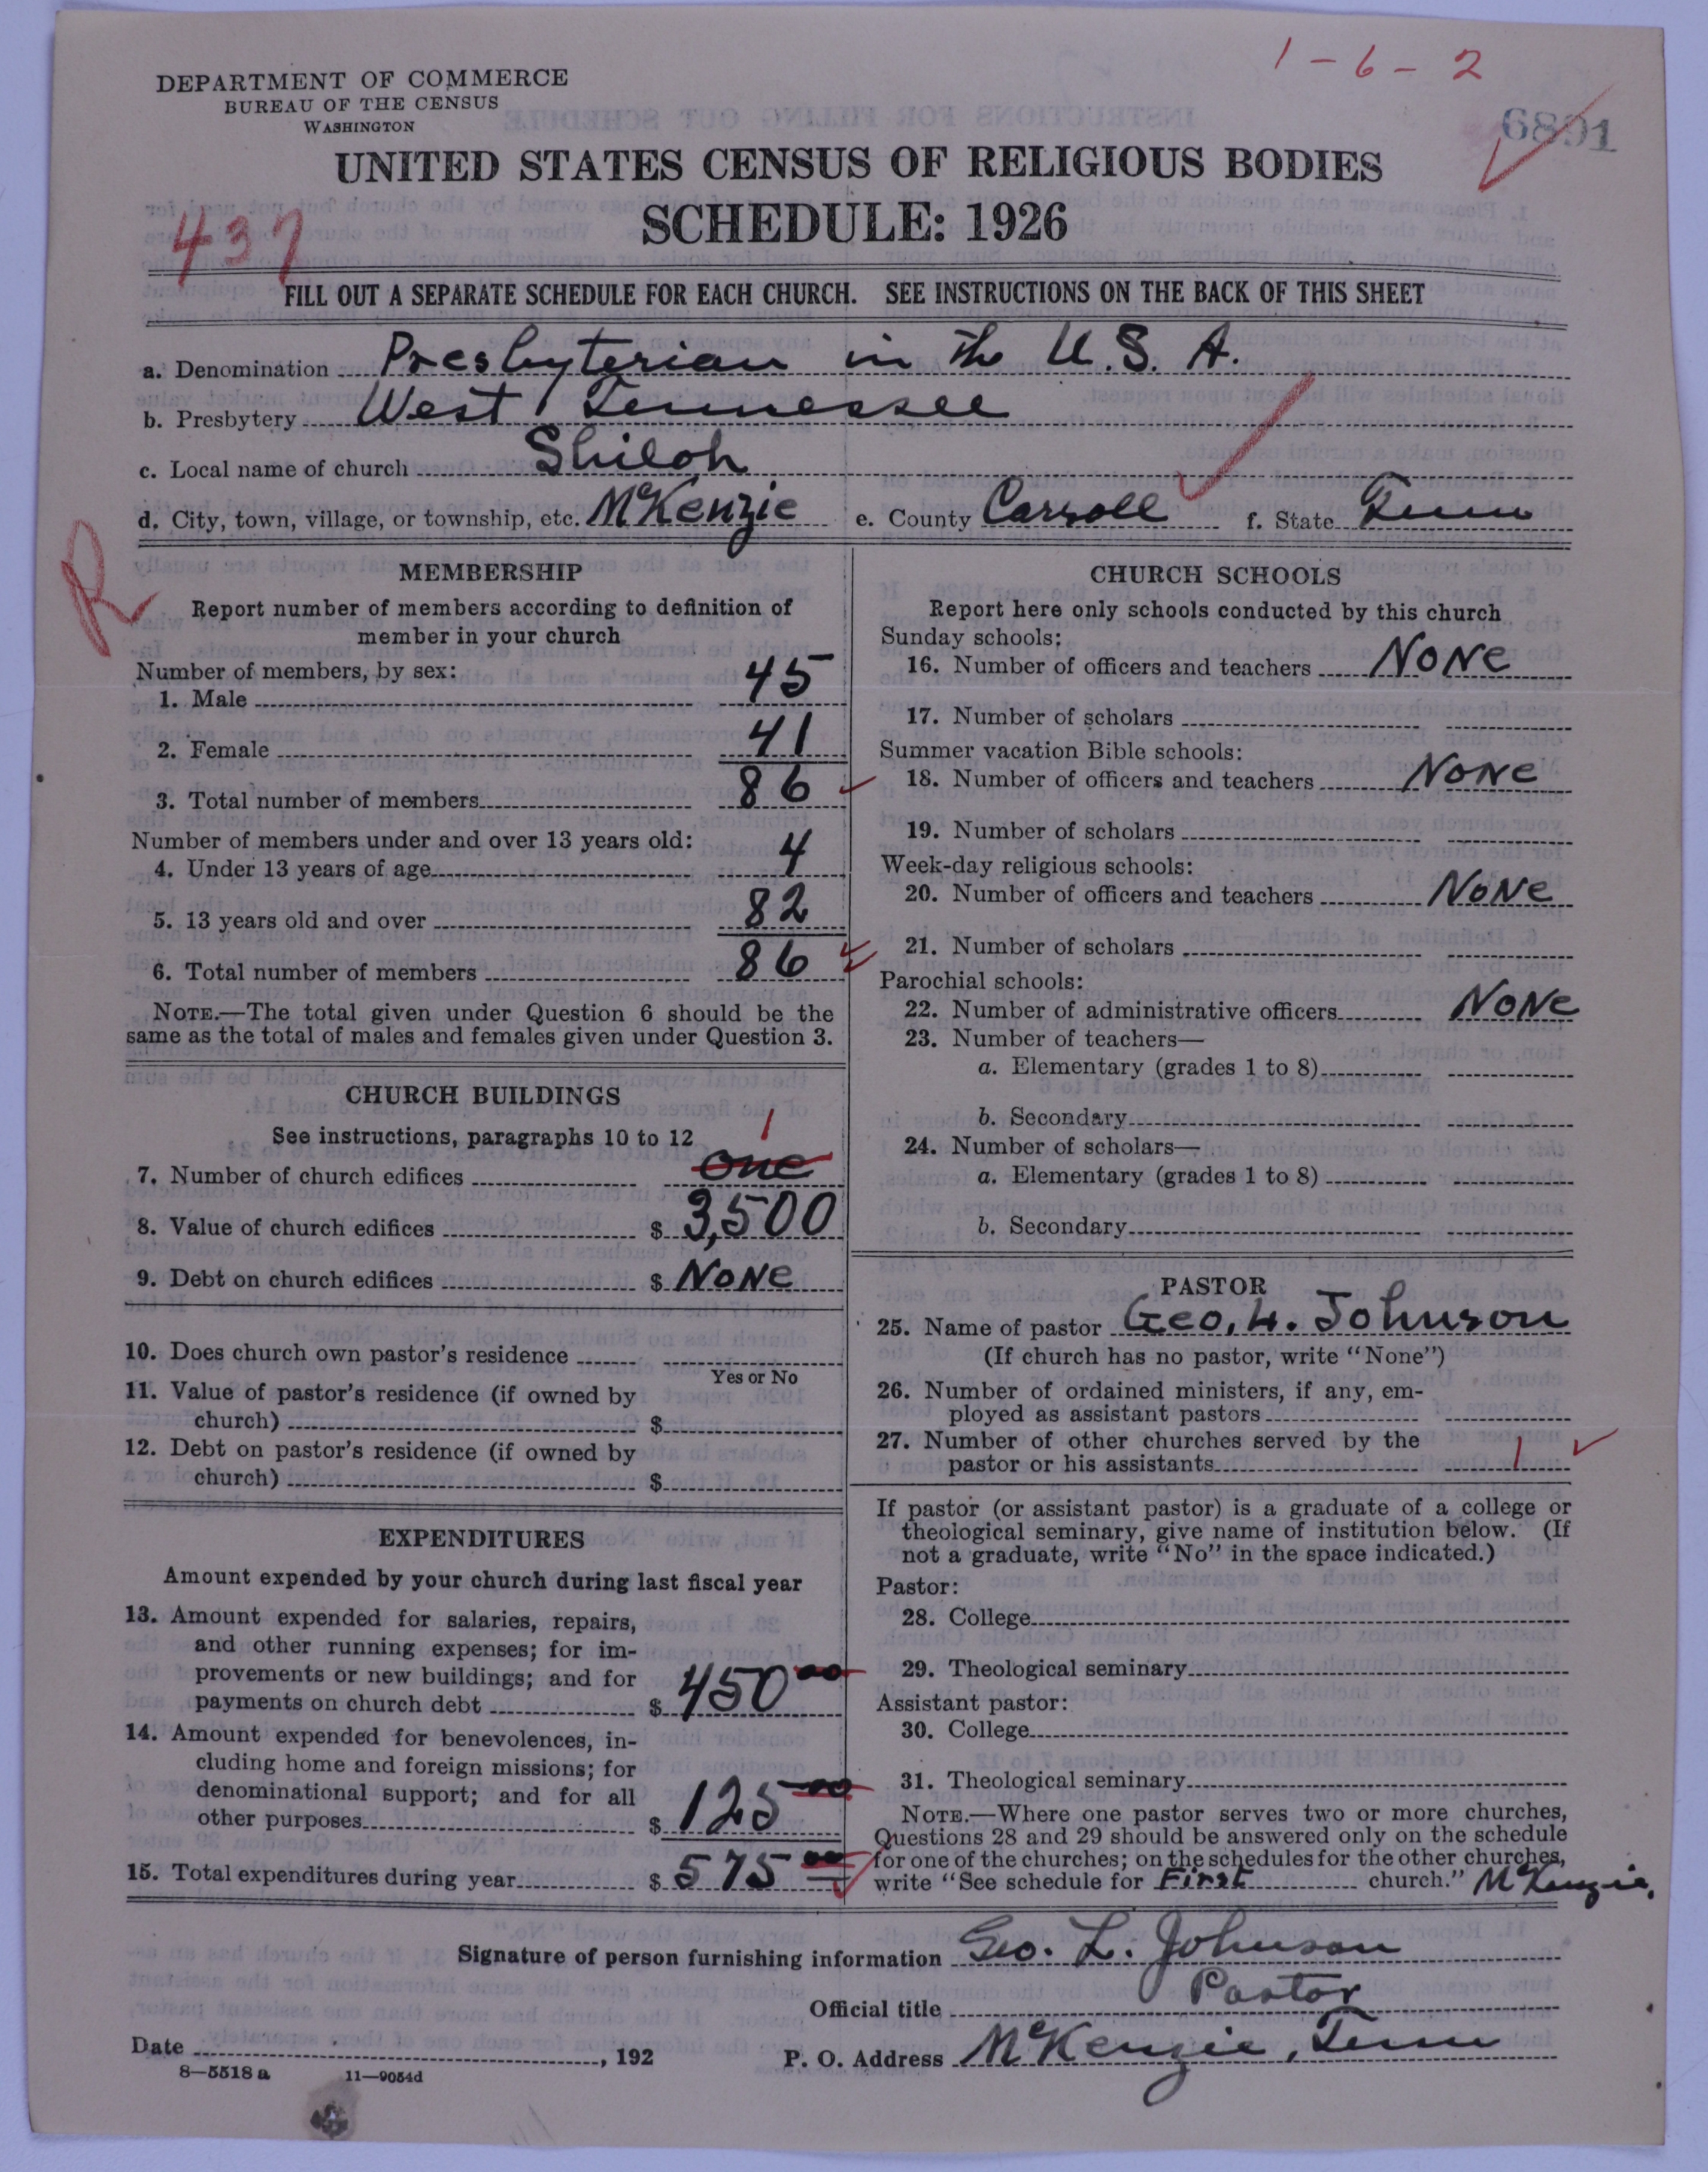 1-6-2
DEPARTMENT OF COMMERCE
BUREAU OF THE CENSUS
WASHINGTON
6891
UNITED STATES CENSUS OF RELIGIOUS BODIES
SCHEDULE: 1926
437
FILL OUT A SEPARATE SCHEDULE FOR EACH CHURCH. SEE INSTRUCTIONS ON THE BACK OF THIS SHEET
a. Denomination Presbyterian in the U.S.A.
b. Presbytery West Tennessee
c. Local name of church Shiloh
d. City, town, village, or township, etc. McKenzie e. County Carroll f. State Tenn
R
MEMBERSHIP
Report number of members according to definition of
member in your church
Number of members, by sex:
1. Male 45
2. Female 41
3. Total number of members 86
Number of members under and over 13 years old:
4. Under 13 years of age 4
5. 13 years old and over 82
6. Total number of members 86
NOTE.—The total given under Question 6 should be the
same as the total of males and females given under Question 3.
CHURCH BUILDINGS
See instructions, paragraphs 10 to 12
1
7. Number of church edifices one
8. Value of church edifices $ 3,500
9. Debt on church edifices $ NONE
10. Does church own pastor's residence
Yes or No
11. Value of pastor's residence (if owned by
church) $
12. Debt on pastor's residence (if owned by
church) $
EXPENDITURES
Amount expended by your church during last fiscal year
13. Amount expended for salaries, repairs,
and other running expenses; for im-
provements or new buildings; and for
payments on church debt $ 450 00
14. Amount expended for benevolences, in-
cluding home and foreign missions; for
denominational support; and for all
other purposes $ 125 00
15. Total expenditures during year $ 575 00
CHURCH SCHOOLS
Report here only schools conducted by this church
Sunday schools:
16. Number of officers and teachers NONE
17. Number of scholars
Summer vacation Bible schools:
18. Number of officers and teachers NONE
19. Number of scholars
Week-day religious schools:
20. Number of officers and teachers NONE
21. Number of scholars
Parochial schools:
22. Number of administrative officers NONE
23. Number of teachers—
a. Elementary (grades 1 to 8)
b. Secondary
24. Number of scholars—
a. Elementary (grades 1 to 8)
b. Secondary
PASTOR
25. Name of pastor Geo. L. Johnson
(If church has no pastor, write "None")
26. Number of ordained ministers, if any, em-
ployed as assistant pastors
27. Number of other churches served by the
pastor or his assistants 1
If pastor (or assistant pastor) is a graduate of a college or
theological seminary, give name of institution below. (If
not a graduate, write "No" in the space indicated.)
Pastor:
28. College
29. Theological seminary
Assistant pastor:
30. College
31. Theological seminary
NOTE.—Where one pastor serves two or more churches,
Questions 28 and 29 should be answered only on the schedule
for one of the churches; on the schedules for the other churches,
write "See schedule for First church." McKenzie.
Signature of person furnishing information Geo. L. Johnson
Official title Pastor
Date , 192 P. O. Address McKenzie, Tenn
8—5518 a 11—9054d